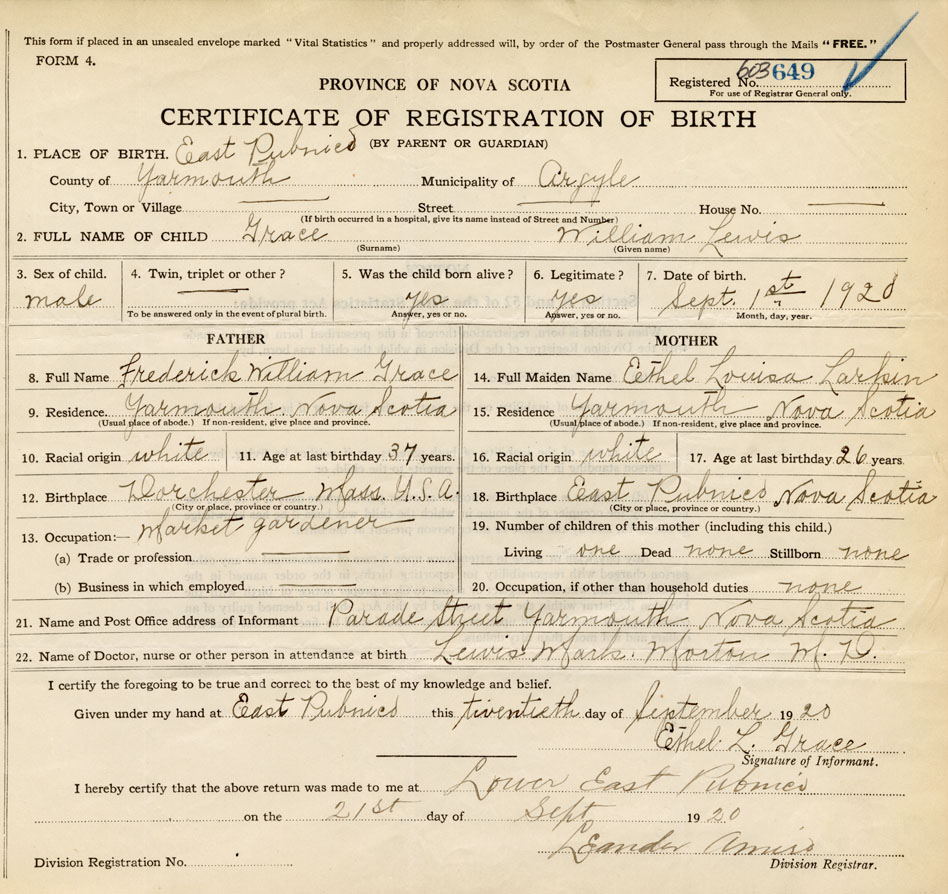 This form if placed in an unsealed envelope marked "Vital Statistics" and properly addressed will, by order of the Postmaster General pass through the Mails "FREE."
FORM 4.
Registered No. 603649
For use of Registrar General only.
PROVINCE OF NOVA SCOTIA
CERTIFICATE OF REGISTRATION OF BIRTH
(BY PARENT OR GUARDIAN)
1. PLACE OF BIRTH. East Pubnico
County of Yarmouth Municipality of Argyle
City, Town or Village Street House No.
(If birth occurred in a hospital, give its name instead of Street and Number)
2. FULL NAME OF CHILD Grace William Lewis
(Surname) (Given name)
3. Sex of child. 4. Twin, triplet or other? 5. Was the child born alive? 6. Legitimate? 7. Date of birth.
male yes yes Sept. 1st 1920
To be answered only in the event of plural birth. Answer, yes or no. Answer, yes or no. Month, day, year.
FATHER MOTHER
8. Full Name Frederick William Grace 14. Full Maiden Name Eethel Louisa Larkin
9. Residence. Yarmouth Nova Scotia 15. Residence Yarmouth Nova Scotia
(Usual place of abode.) If non-resident, give place and province. (Usual place of abode.) If non-resident, give place and province.
10. Racial origin white 11. Age at last birthday 37 years. 16. Racial origin white 17. Age at last birthday 26 years.
12. Birthplace Dorchester Mass. U.S.A. 18. Birthplace East Pubnico Nova Scotia
(City or place, province or country.) (City or place, province or country.)
13. Occupation:— Market gardener 19. Number of children of this mother (including this child.)
(a) Trade or profession Living one Dead none Stillborn none
(b) Business in which employed 20. Occupation, if other than household duties none
21. Name and Post Office address of Informant Parade Street Yarmouth Nova Scotia
22. Name of Doctor, nurse or other person in attendance at birth Lewis Mark. Morton M. D.
I certify the foregoing to be true and correct to the best of my knowledge and belief.
Given under my hand at East Pubnico this twentieth day of September 1920
Ethel L. Grace
Signature of Informant.
I hereby certify that the above return was made to me at Lower East Pubnico
on the 21st day of Sept 1920
Leander Amiro
Division Registrar.
Division Registration No.